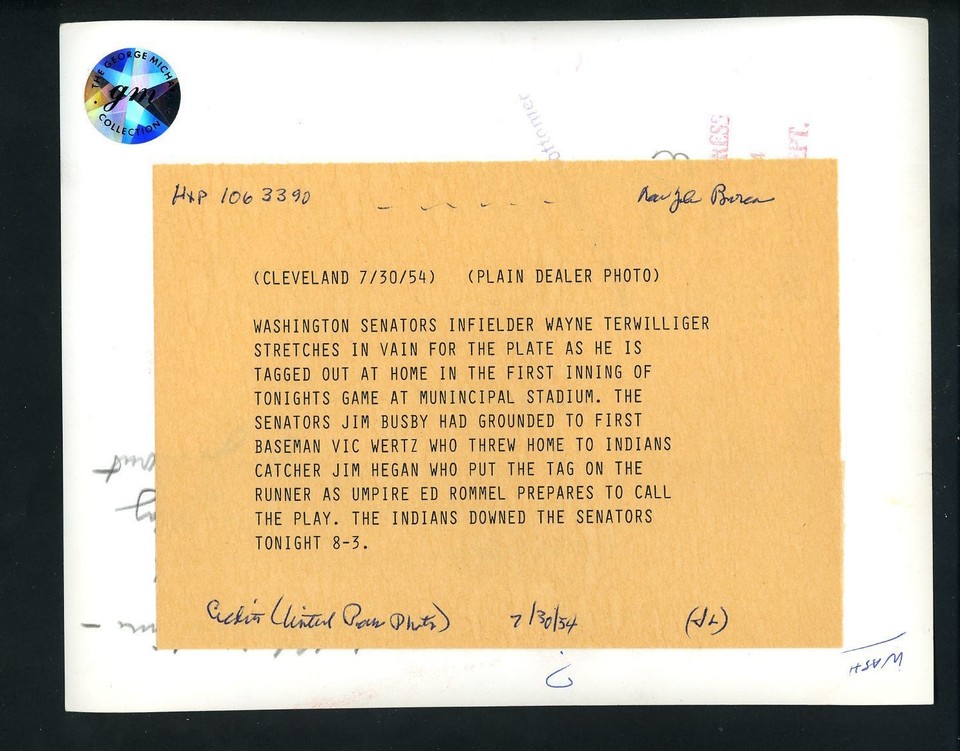 THE GEORGE MICHA
gm
COLLECTION
RESS
PT.
HXP 1063390
(CLEVELAND 7/30/54) (PLAIN DEALER PHOTO)
WASHINGTON SENATORS INFIELDER WAYNE TERWILLIGER
STRETCHES IN VAIN FOR THE PLATE AS HE IS
TAGGED OUT AT HOME IN THE FIRST INNING OF
TONIGHTS GAME AT MUNINCIPAL STADIUM. THE
SENATORS JIM BUSBY HAD GROUNDED TO FIRST
BASEMAN VIC WERTZ WHO THREW HOME TO INDIANS
CATCHER JIM HEGAN WHO PUT THE TAG ON THE
RUNNER AS UMPIRE ED ROMMEL PREPARES TO CALL
THE PLAY. THE INDIANS DOWNED THE SENATORS
TONIGHT 8-3.
Credit (United Press Photo) 7/30/54 (JL)
WASH